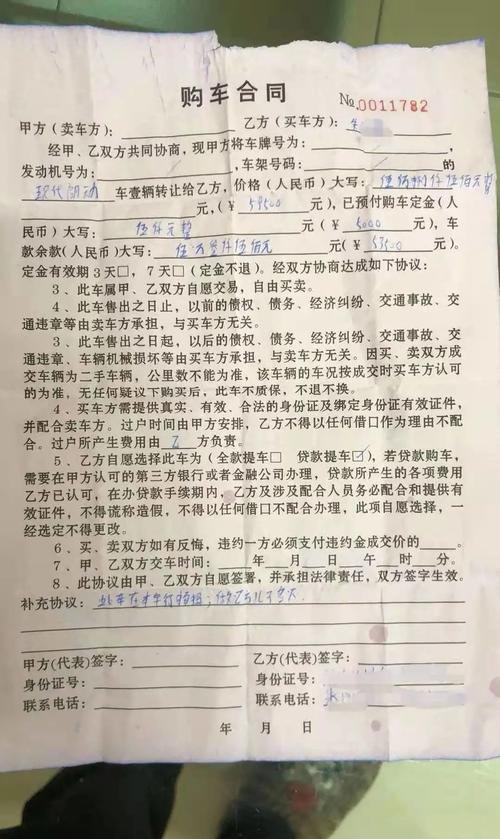 购车合同 №0011782
甲方（卖车方）： 乙方（买车方）：
经甲、乙双方共同协商，现甲方将车牌号为：
发动机号为： 车架号码： 的
现代朗动 车壹辆转让给乙方，价格（人民币）大写：
元，(￥ 58500 元（￥ 5000 元），已预付购车定金（人
民币）大写： 伍仟元整 元（￥ 5000 元），车
款余款（人民币）大写： 伍万叁仟伍佰元 元（￥ 53500 元）。
定金有效期3天□，7天□（定金不退）。经双方协商达成如下协议：
3、此车属甲、乙双方自愿交易，自由买卖。
4、此车售出之日止，以前的债权、债务、经济纠纷、交通事故、交
通违章等由卖车方承担，与买车方无关。
3、此车售出之日起，以后的债权、债务、经济纠纷、交通事故、交
通违章、车辆机械损坏等由买车方承担，与卖车方无关。因买、卖双方成
交车辆为二手车辆，公里数不能为准，该车辆的车况按成交时买车方认可
的为准，无任何疑议下购买后，此车不质保，不退不换。
4、买车方需提供真实、有效、合法的身份证及绑定身份证有效证件，
并配合卖车方。过户时间由甲方安排，乙方不得以任何借口作为理由不配
合。过户所产生费用由 乙 方负责。
5、乙方自愿选择此车为（全款提车□ 贷款提车☑），若贷款购车，
需要在甲方认可的第三方银行或者金融公司办理，贷款所产生的各项费用
乙方已认可，在办贷款手续期内，乙方及涉及配合人员务必配合和提供有
效证件，不得谎称造假，不得以任何借口不配合办理，此项自愿选择，一
经选定不得更改。
6、买、卖双方如有反悔，违约一方必须支付违约金成交价的 。
7、甲、乙双方交车时间： 年 月 日 午 时 分。
8、此协议由甲、乙双方自愿签署，并承担法律责任，双方签字生效。
补充协议： 此车在本车行
甲方(代表)签字： 乙方(代表)签字：
身份证号： 身份证号：
联系电话： 联系电话：
年 月 日